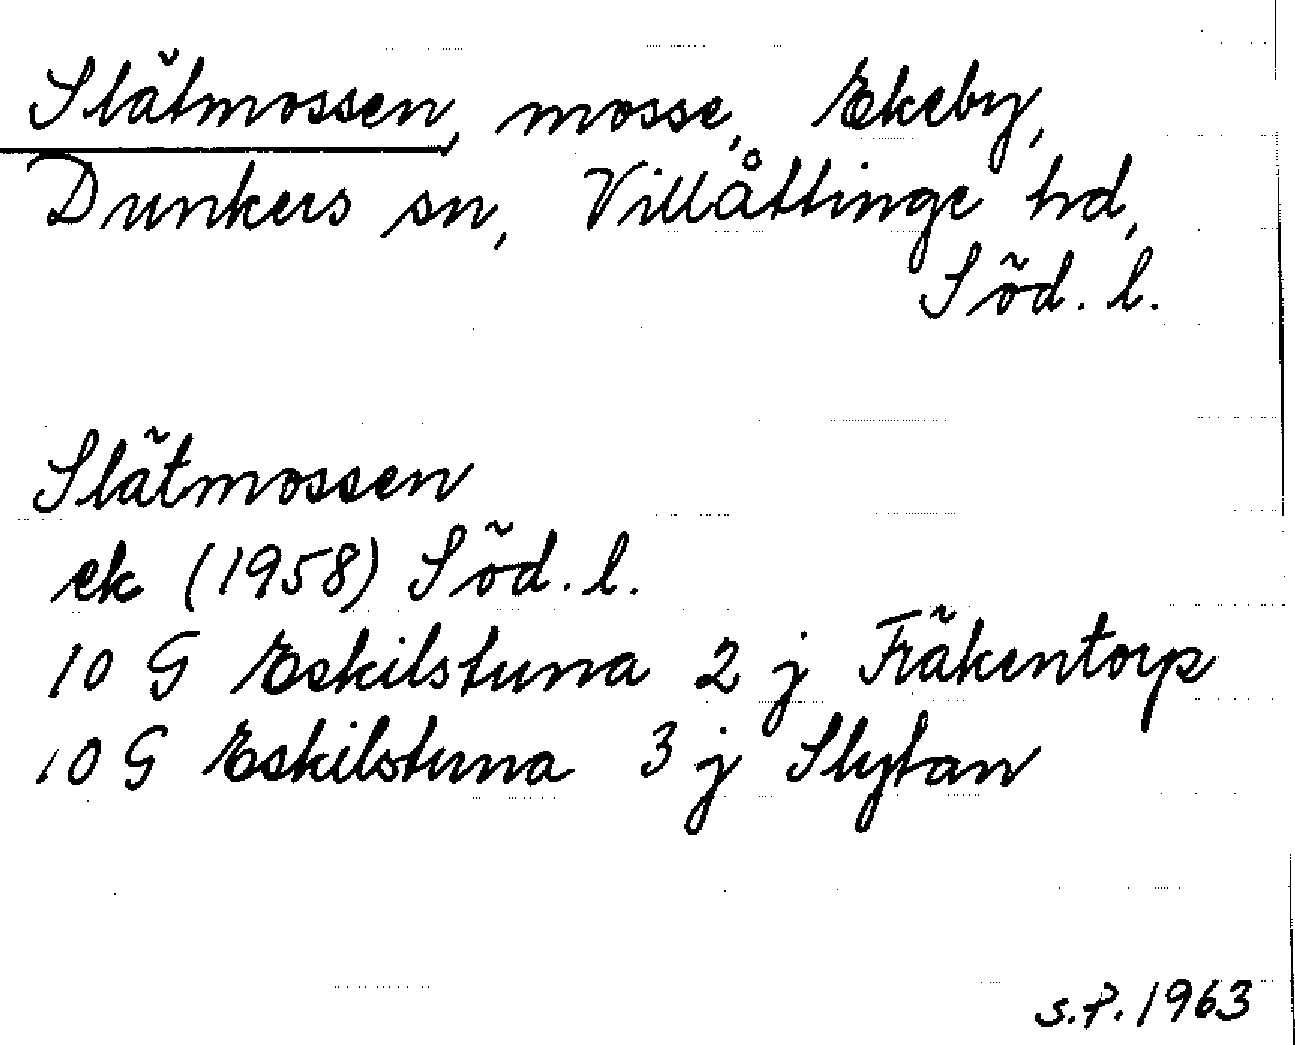 Slätmossen, mosse, Ekeby,
Dunkers sn, Villåttinge hd,
Söd. l.
Slätmossen
ek (1958) Söd. l.
10 G Eskilstuna 2 j Fräkentorp
10 G Eskilstuna 3 j Slytan
S.P. 1963